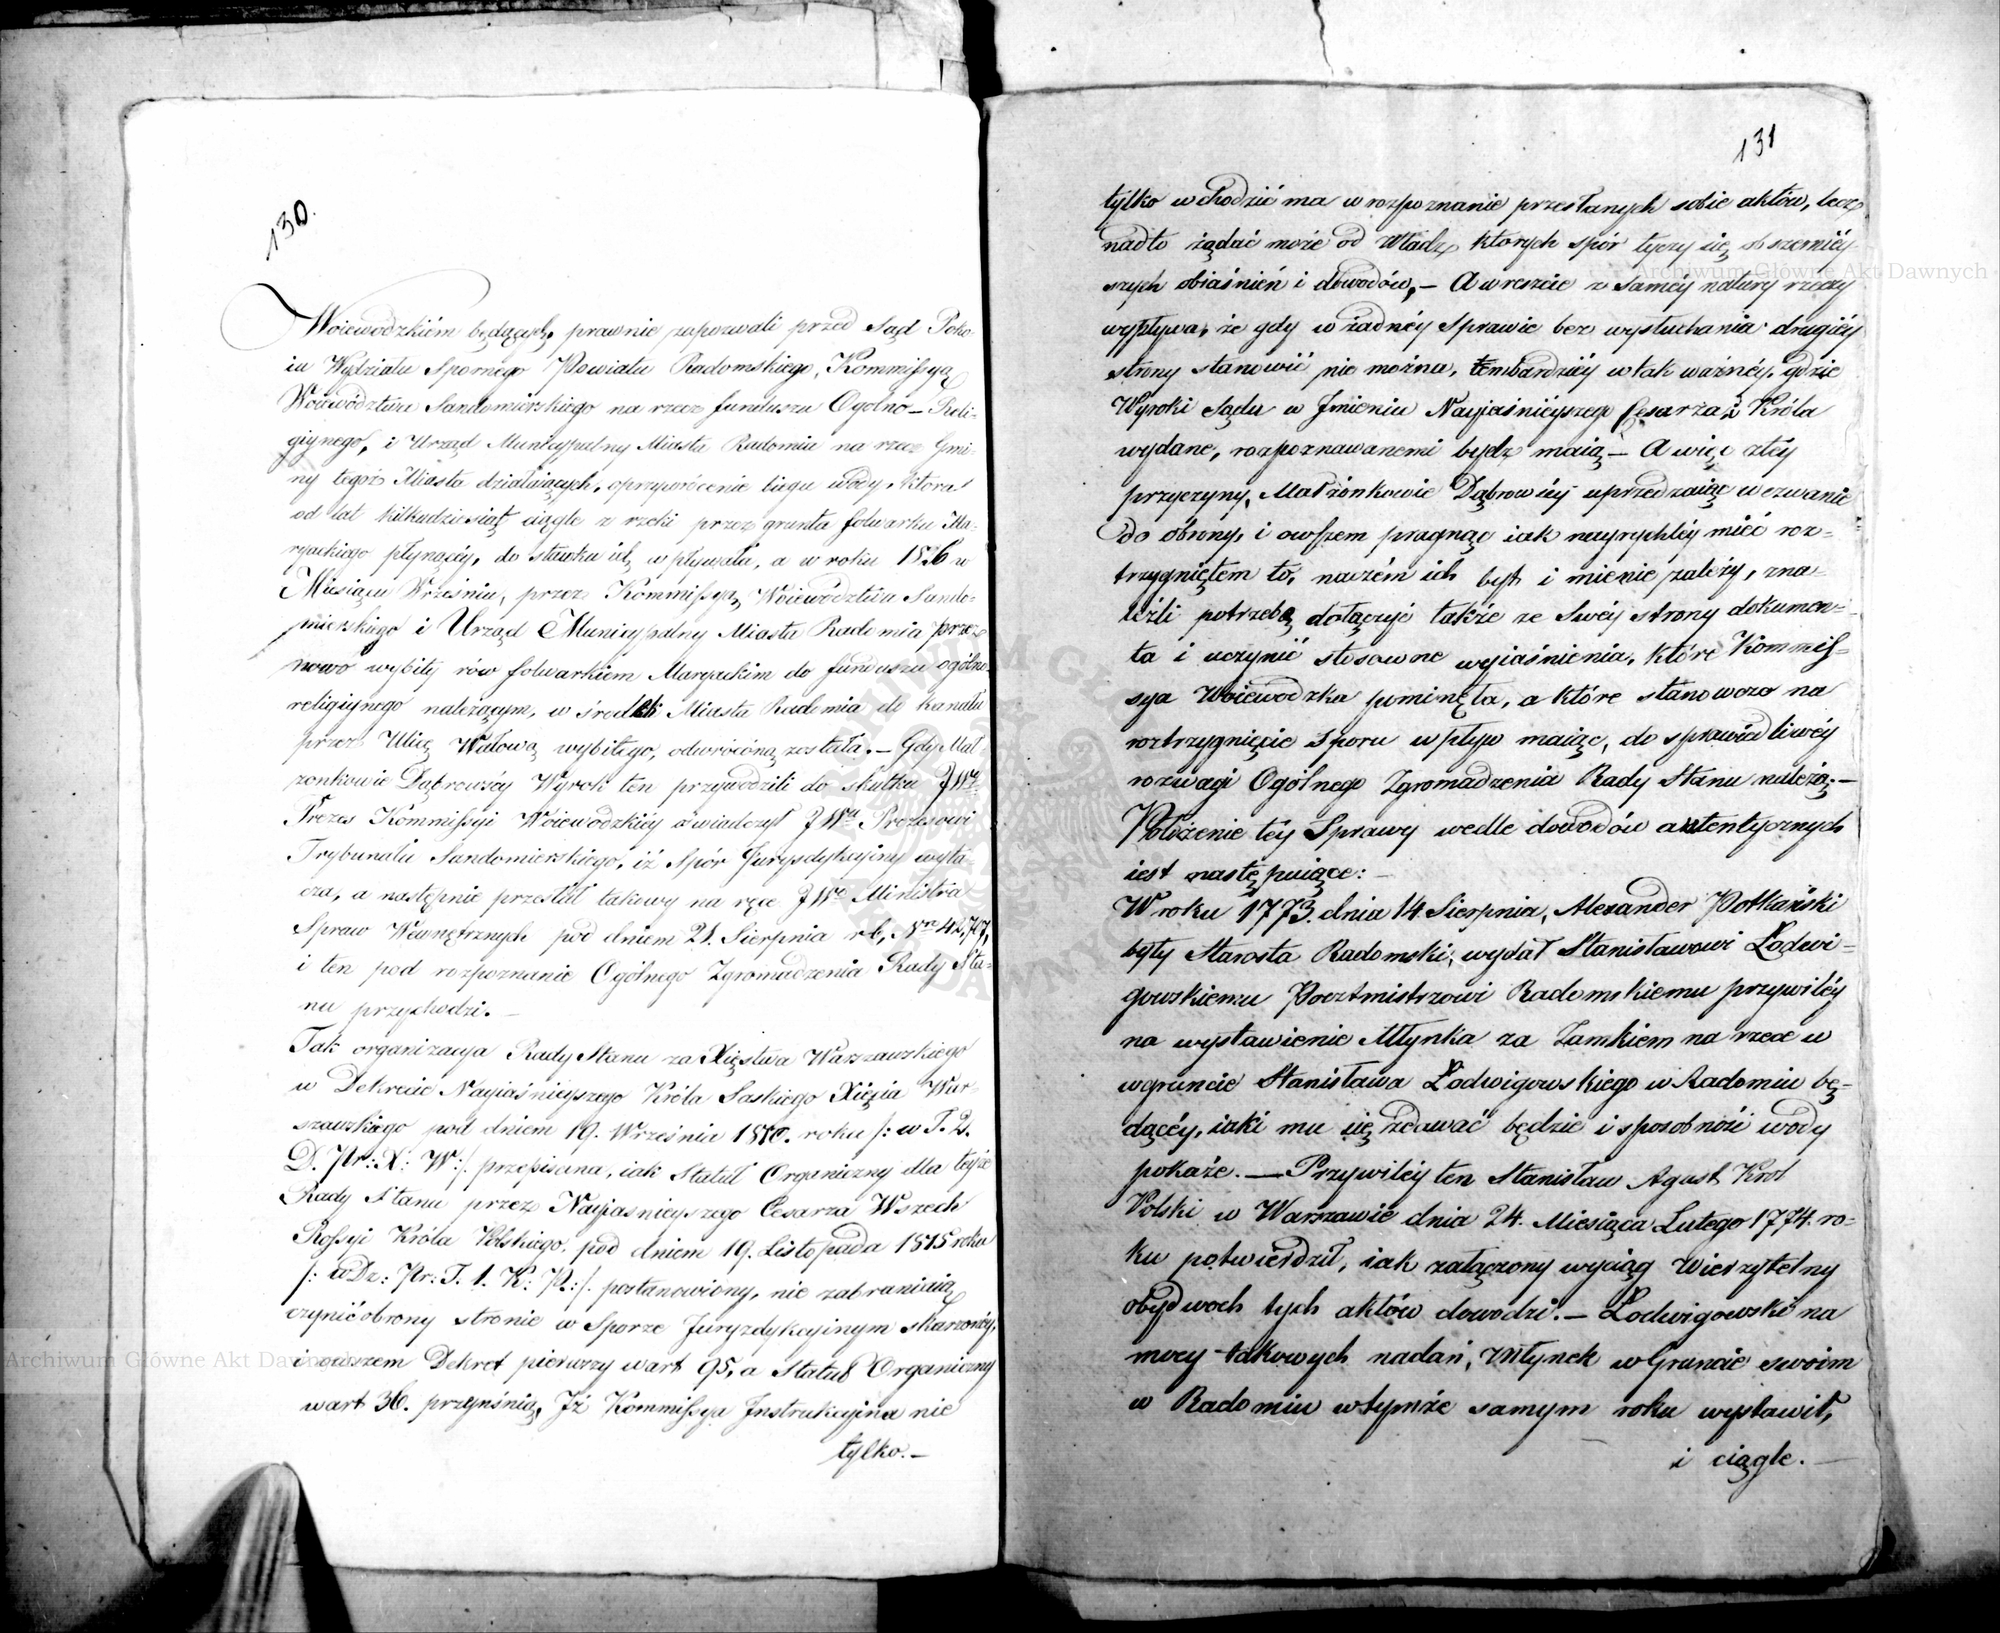 130.
Woiewodzkiém będących, prawnie zapozwali przed Sąd Poko-
iu Wydziału Spornego Powiatu Radomskiego, Kommissyą
Woiewództwa Sandomierskiego na rzecz funduszu Ogolno-Reli-
giynego, i Urząd Municypalny Miasta Radomia na rzecz Gmi-
ny tegoż Miasta działaiących, o przywrócenie biegu wody, która
od lat kilkudziesiąt ciągle z rzeki przez grunta folwarku Ma-
ryackiego płynącéy, do stawku ich wpływała, a w roku 1826 w
Miesiącu Wrześniu, przez Kommissyą Woiewództwa Sando-
mierskiego i Urząd Municypalny Miasta Radomia przez
nowo wybity rów folwarkiem Maryackim do funduszu ogólno
religiynego należącym, w środek Miasta Radomia do kanału
przez Ulicę Wałową wybitego, odwróconą została. — Gdy Mał-
żonkowie Dąbrowscy Wyrok ten przywodzili do skutku JWny
Prezes Kommissyi Woiewodzkiéy oświadczył JWu Prezesowi
Trybunału Sandomierskiego, iż Spór Jurysdykcyiny wyta-
cza, a następnie przesłał takowy na ręce JWo Ministra
Spraw Wewnętrznych pod dniem 21. Sierpnia r.b. Nro 42,707,
i ten pod rozpoznanie Ogólnego Zgromadzenia Rady Sta-
nu przychodzi. —
Tak organizacya Rady Stanu za Xięstwa Warszawskiego
w Dekrecie Nayiaśnieyszego Króla Saskiego Xięcia War-
szawskiego pod dniem 19. Września 1810. roku /: w T. 2.
D. Pr: X: W:/. przepisana, iak Statut Organiczny dla teyże
Rady Stanu przez Nayiaśnieyszego Cesarza Wszech
Rossyi Króla Polskiego, pod dniem 19. Listopada 1815 roku
/: w Dz: Pr: T. 1. K: P:/. postanowiony, nie zabraniaią
czynić obrony stronie w Sporze Juryzdykcyinym skarzonéy,
i owszem Dekret pierwszy w art 95, a Statut Organiczny
w art 36. przynśnią, Iż Kommissya Instrukcyina nie
tylko. —
131
tylko wchodzić ma w rozpoznanie przesłanych sobie aktów, lecz
nadto żądać może od Władz których spór tyczy się obszerniéy-
szych obiaśnień i dowodów, — A wreszcie z saméy natury rzeczy
wypływa, że gdy w żadnéy Sprawie bez wysłuchania drugiéy
strony stanowić nie można, tembardziéy w tak ważnéy, gdzie
Wyroki Sądu w Jmieniu Nayiaśnieyszego Cesarza i Króla
wydane, rozpoznawanemi bydź maią — A więc z téy
przyczyny, Małżonkowie Dąbrowscy uprzedzaiąc wezwanie
do obrony, i owszem pragnąc iak nayrychléy mieć roz-
trzygniętem to, na czém ich byt i mienie zależy, zna-
leźli potrzebą dołączyć także ze Swéy strony dokumen-
ta i uczynić stosowne wyiaśnienia, które Kommis-
sya Woiewodzka pominęła, a które stanowczo na
roztrzygnięcie Sporu wpływ maiąc, do sprawiedliwéy
rozwagi Ogólnego Zgromadzenia Rady Stanu należą: —
Położenie téy Sprawy wedle dowodów autentycznych
iest następuiące: —
W roku 1773. dnia 14. Sierpnia, Alexander Potkański
były Starosta Radomski, wydał Stanisławowi Lodwi-
gowskiemu Pocztmistrzowi Radomskiemu przywiléy
na wystawienie Młynka za Zamkiem na rzece w
w gruncie Stanisława Lodwigowskiego w Radomiu bę-
dącéy, iaki mu się zdawać będzie i sposobność wody
pokaże. — Przywiléy ten Stanisław Agust Krol
Polski w Warszawie dnia 24. Miesiąca Lutego 1774. ro-
ku potwierdził, iak załączony wyciąg Wierzytelny
obydwoch tych aktów dowodzi. — Lodwigowski na
mocy takowych nadań, Młynek w Gruncie swoim
w Radomiu w tymże samym roku wystawił,
i ciągle. —
Archiwum Główne Akt Dawnych
Archiwum Główne Akt Dawnych